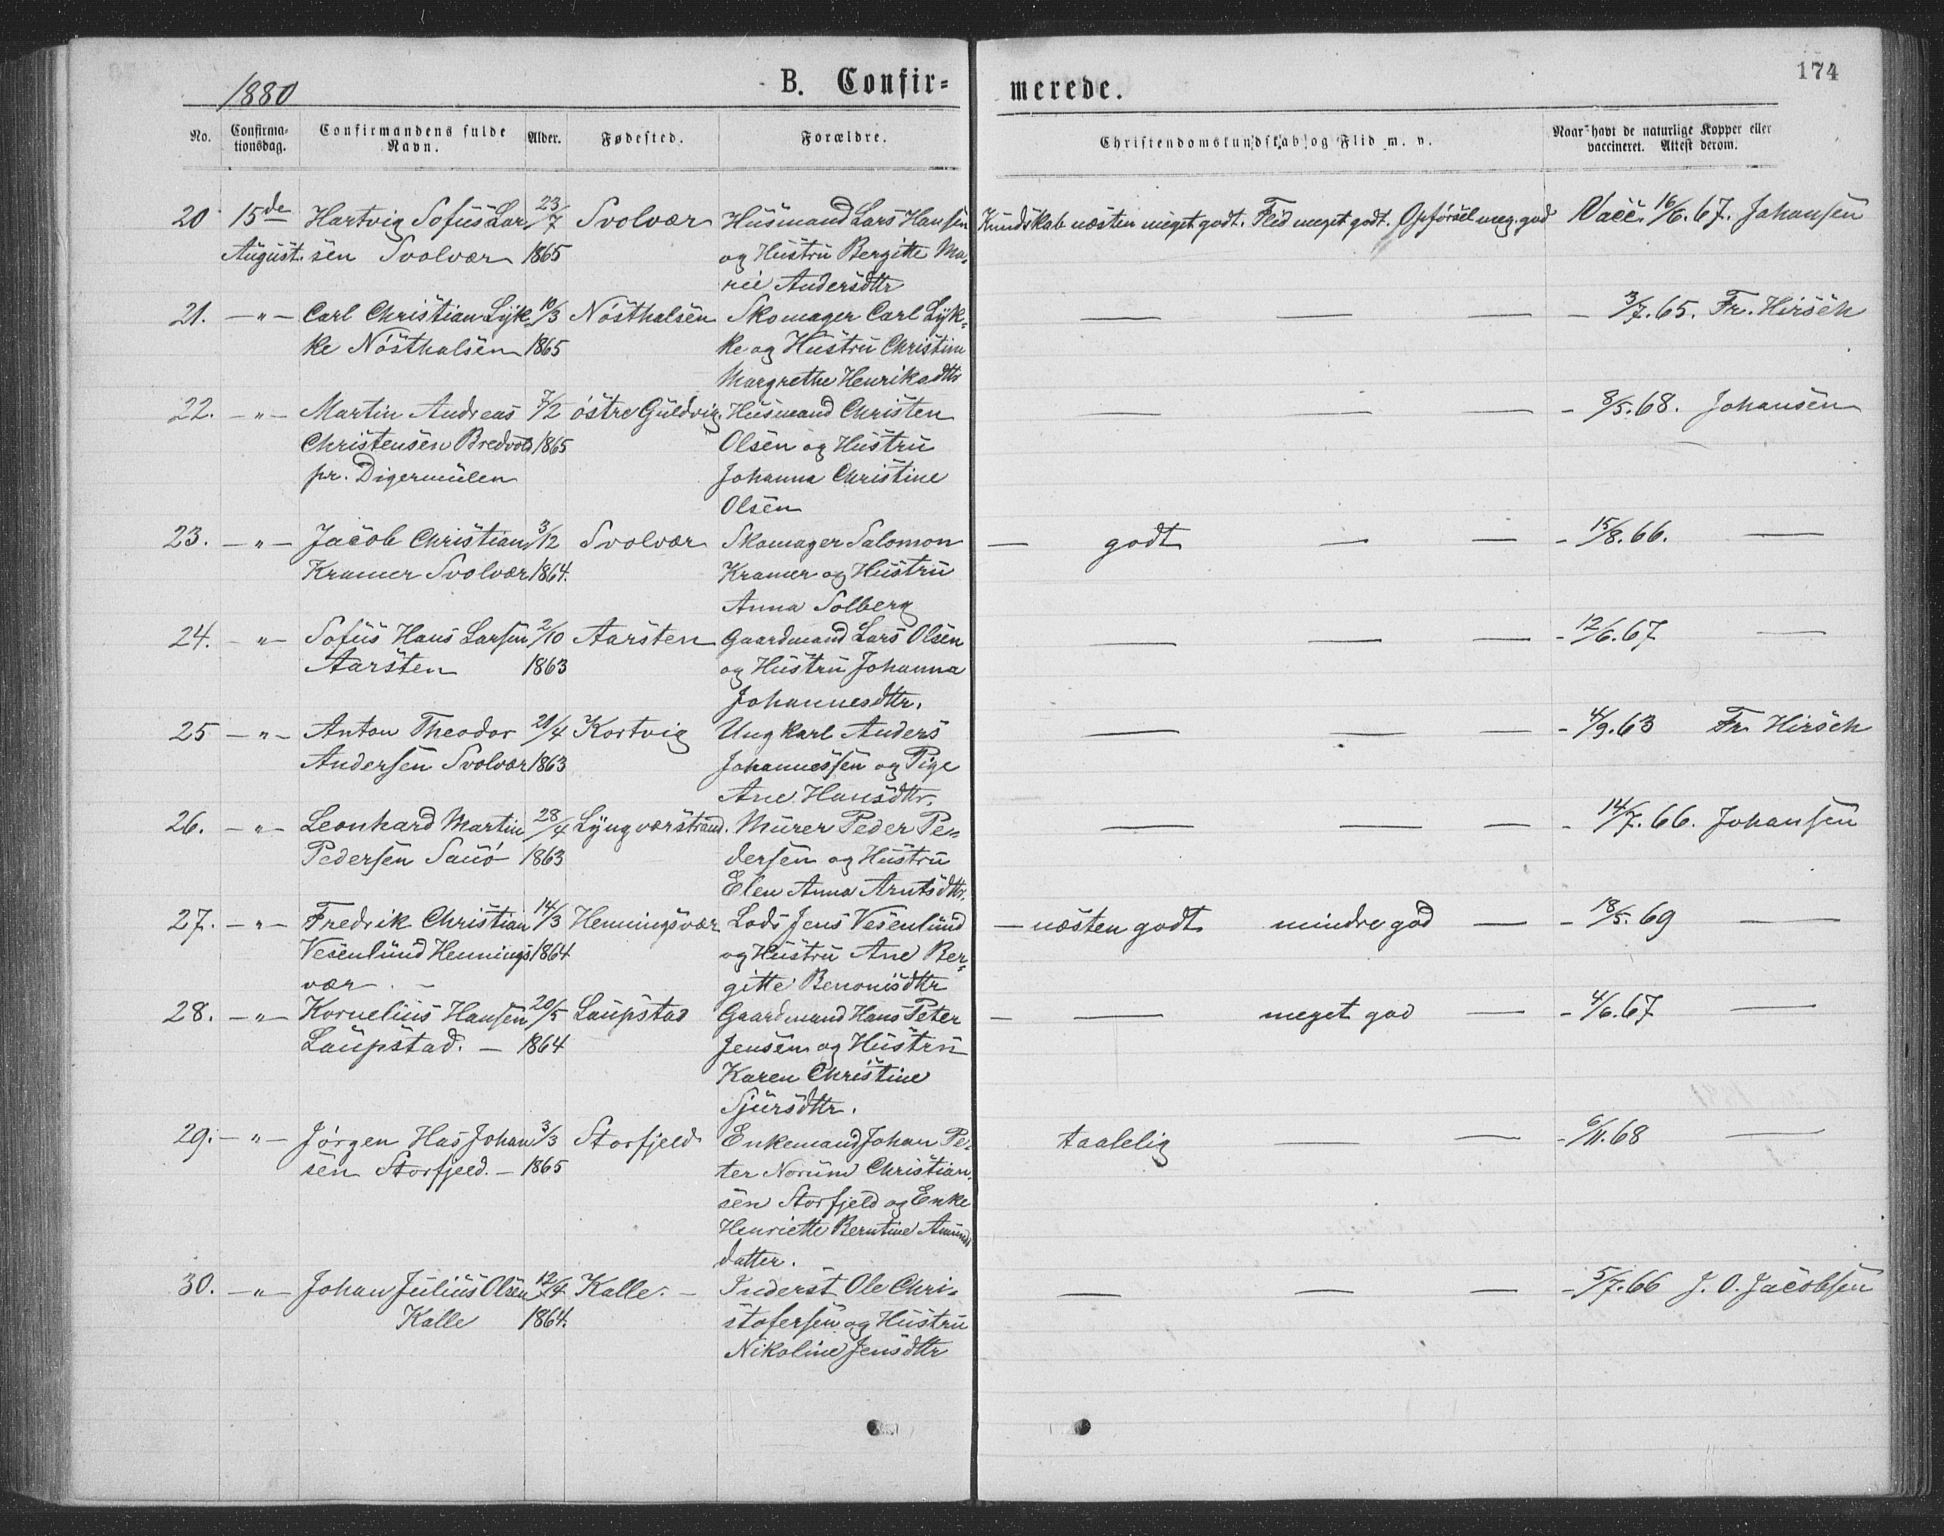 174
1880 B. Confir- merede.
No. Confirma- tionsdag. Confirmandens fulde Navn. Alder. Fødested. Forældre. Christendomskundskab og Flid m. v. Naar havt de naturlige Kopper eller vaccineret. Attest derom.
20 15de Hartvig Sofus Lar 23/7 Svolvær Husmand Lars Hansen Kundskab næsten meget godt. Flid meget godt. Opførsel meg. god Vacc. 16/6. 67. Johansen
August. sen Svolvær 1865 og Hustru Bergitte Ma-
rie Andersdtr
21. — " — Carl Christian Lyk 10/3 Nösthalsen Skomager Carl Lyk- — — — - 3/7. 65. Fr. Hirsch
ke Nösthalsen 1865 ke og Hustru Christine
Margrethe Henriksdtr
22. — " — Martin Andreas 7/2 östre Guldvig Husmand Christen — — — - 8/5. 68. Johansen
Christensen Bredvold 1865 Olsen og Hustru
pr. Digermulen Johanna Christine
Olsen
23. — " — Jacob Christian 3/12 Svolvær Skomager Salomon — godt — — - 15/8. 66. —
Kramer Svolvær 1864. Kramer og Hustru
Anna Solberg
24. — " — Sofus Hans Larsen 2/10 Aarsten Gaardmand Lars Olsen — — — - 12/6. 67 —
Aarsten 1863 og Hustru Johanna
Johannesdtr.
25 — " — Anton Theodor 21/4 Kortvig Ungkarl Anders — — — - 4/9. 63 Fr. Hirsch
Andersen Svolvær 1863 Johannessen og Pige
Ane Hansdtr.
26. — " — Leonhard Martin 28/4 Lyngværstrand. Murer Peder Pe- — — — - 14/7. 66. Johansen
Pedersen Sauö 1863 dersen og Hustru
Elen Anna Arntsdtr.
27. — " — Fredrik Christian 14/3 Henningsvær Lods Jens Vesenlund — næsten godt mindre god — - 18/5. 69 —
Vesenlund Hennings 1864 og Hustru Ane Ber-
vær. — gitte Benonisdtr
28. — " — Kornelius Hansen 20/5 Laupstad Gaardmand Hans Peter — — meget god — - 4/6. 67 —
Laupstad. — 1864 Jensen og Hustru
Karen Christine
Sjursdtr.
29. — " — Jörgen Has Johan 3/3 Storfjeld Enkemand Johan Pe- taalelig — — - 6/11. 68 —
sen Storfjeld. — 1865 ter Norum Christian-
sen Storfjeld og Enke
Henriette Berntine Amunds
datter.
30. — " — Johan Julius Olsen 12/4 Kalle. — Inderst Ole Chri- — — — - 5/7. 66 J. O. Jacobsen
Kalle 1864. stofersen og Hustru
Nikoline Jensdtr